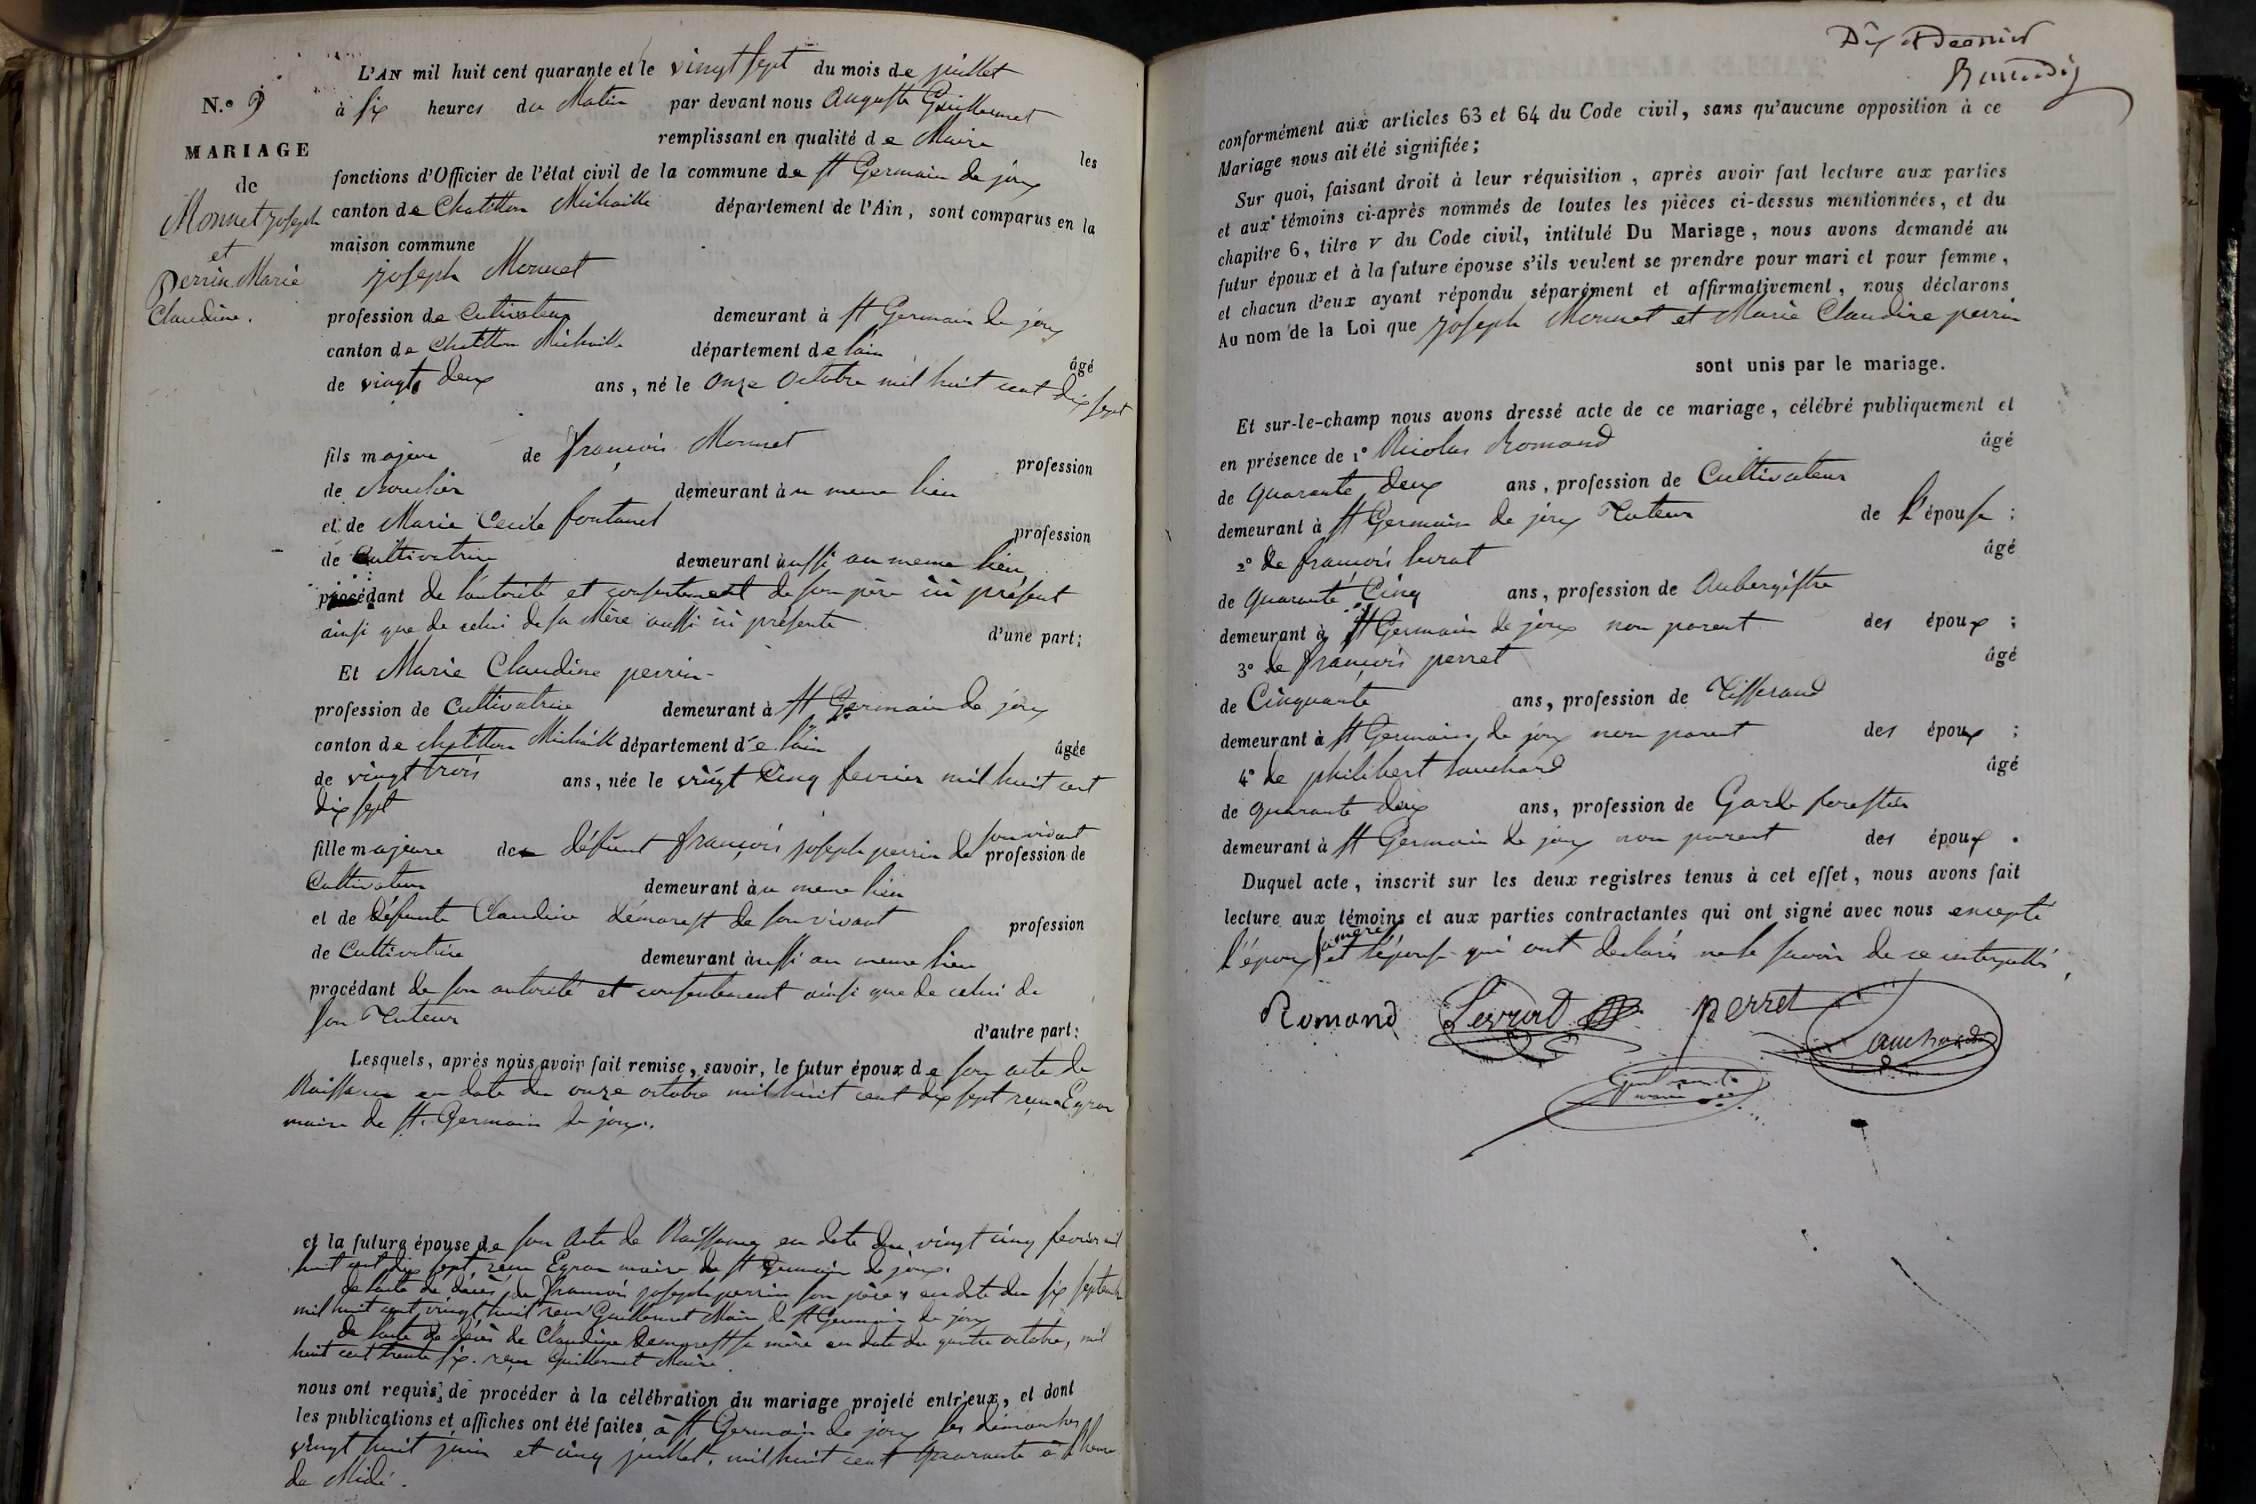 L'AN mil huit cent quarante et le vingt sept du mois de juillet
N.º 9 à six heures du Matin par devant nous Auguste Guillermet
remplissant en qualité de Maire les
MARIAGE
fonctions d'Officier de l'état civil de la commune de St Germain de joux
de
canton de Chatillon Michaille département de l'Ain, sont comparus en la
Monnet joseph
maison commune
et
joseph Monnet
Perrin Marie
Claudine.
profession de Cultivateur demeurant à St Germain de joux
canton de Chatillon Michaille département de l'ain âgé
de vingt deux ans, né le onze octobre mil huit cent dix sept
fils majeur de françois Monnet profession
de demeurant au meme lieu
et de Marie Cecile fontanet profession
de Cultivatrice demeurant aussi au meme lieu
procédant de l'autorité et consentement de son père ici présent
ainsi que de celui de sa Mère aussi ici présente d'une part;
Et Marie Claudine perrin
profession de Cultivatrice demeurant à St Germain de joux
canton de chatillon Michaille département de l'ain âgée
de vingt trois ans, née le vingt Cinq fevrier mil huit cent
dix sept
fille majeure de défunt françois joseph perrin de son vivant profession de
Cultivateur demeurant au meme lieu
et de défunte Claudine démarest de son vivant profession
de Cultivatrice demeurant aussi au meme lieu
procédant de son autorité et consentement ainsi que de celui de
son Tuteur d'autre part;
Lesquels, après nous avoir fait remise, savoir, le futur époux de son acte de
Naissance en date du onze octobre mil huit cent dix sept reçu Egron
maire de St. Germain de joux.
et la future épouse de son Acte de Naissance en date du vingt cinq fevrier mil
huit cent dix sept reçu Egron maire de St Germain de joux.
de l'acte de décès de François joseph perrin son père en date du six septembre
mil huit cent vingt huit reçu Guillermet Maire de St Germain de joux
de l'acte de décès de Claudine Demarest sa mère en date du quatre octobre, mil
huit cent trente six. reçu Guillermet Maire.
nous ont requis, de procéder à la célébration du mariage projeté entr'eux, et dont
les publications et affiches ont été faites à St Germain de joux les dimanches
vingt huit juin et cinq juillet, mil huit cent quarante à l'heure
de Midi.
Dix et Dernier
conformément aux articles 63 et 64 du Code civil, sans qu'aucune opposition à ce
Mariage nous ait été signifiée;
Sur quoi, faisant droit à leur réquisition, après avoir fait lecture aux parties
et aux témoins ci-après nommés de toutes les pièces ci-dessus mentionnées, et du
chapitre 6, titre V du Code civil, intitulé Du Mariage, nous avons demandé au
futur époux et à la future épouse s'ils veulent se prendre pour mari et pour femme,
et chacun d'eux ayant répondu séparément et affirmativement, nous déclarons
Au nom de la Loi que joseph Monnet et Marie Claudine perrin
sont unis par le mariage.
Et sur-le-champ nous avons dressé acte de ce mariage, célébré publiquement et
en présence de 1º Nicolas Romand âgé
de quarante deux ans, profession de Cultivateur
demeurant à St Germain de joux Tuteur de l'épouse;
2º de françois levrat âgé
de quarante Cinq ans, profession de Aubergiste
demeurant à St Germain de joux non parent des époux;
3º de françois perret âgé
de Cinquante ans, profession de Tisserand
demeurant à St Germain de joux non parent des époux;
4º de philibert âgé
de quarante deux ans, profession de Garde forestier
demeurant à St Germain de joux non parent des époux.
Duquel acte, inscrit sur les deux registres tenus à cet effet, nous avons fait
lecture aux témoins et aux parties contractantes qui ont signé avec nous excepté
l'époux sa mère et l'épouse qui ont declarés ne le savoir de ce interpellés,
Romand Levrat perret